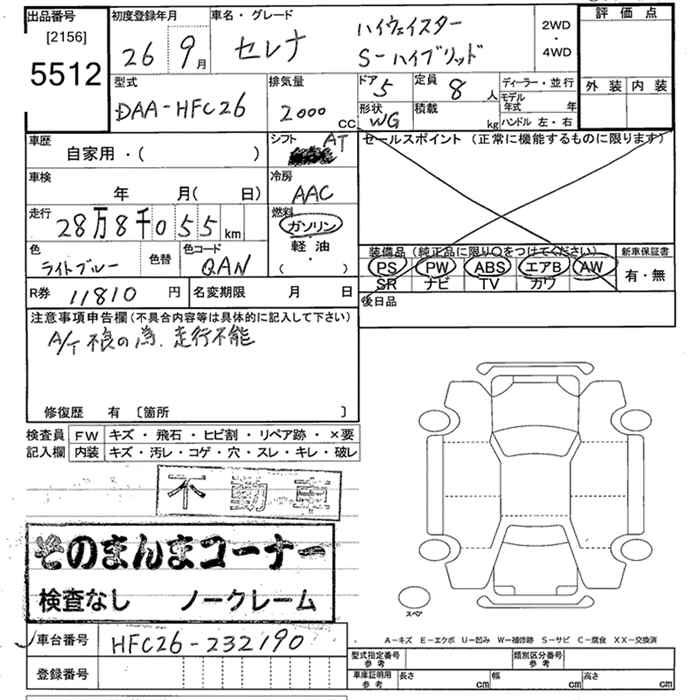 出品番号
[2156]
5512
初度登録年月
26 9月
車名・グレード
セレナ
ハイウェイスター
S-ハイブリッド
2WD
・
4WD
評価点
外装 内装
型式
DAA-HFC26
排気量
2000 CC
ドア 5
定員 8 人
形状 WG
積載 kg
ディーラー・並行
モデル年式 年
ハンドル 左・右
車歴
自家用・( )
シフト AT
セールスポイント (正常に機能するものに限ります)
車検
年 月( 日)
冷房
AAC
走行
28万8千055 km
燃料
ガソリン
軽油
( ・ )
色
ライトブルー
色替
色コード
QAN
装備品 (純正品に限り○をつけてください)
PS PW ABS エアB AW
SR ナビ TV カワ
新車保証書
有・無
R券 11810 円
名変期限 月 日
後日品
注意事項申告欄 (不具合内容等は具体的に記入して下さい)
A/T 不良の為、走行不能
修復歴 有 [箇所 ]
検査員 FW キズ・飛石・ヒビ割・リペア跡・×要
記入欄 内装 キズ・汚レ・コゲ・穴・スレ・キレ・破レ
不動車
そのまんまコーナー
検査なし ノークレーム
スペア
車台番号 HFC26-232190
登録番号
A-キズ E-エクボ U-凹み W-補修跡 S-サビ C-腐食 XX-交換済
型式指定番号 参考
類別区分番号 参考
車庫証明用 参考
長さ cm
幅 cm
高さ cm